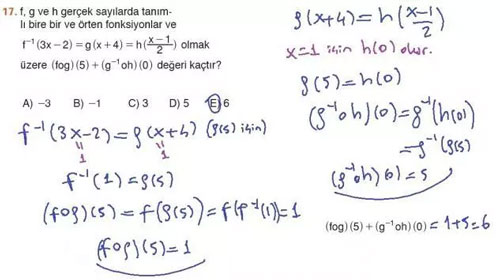 17. f, g ve h gerçek sayılarda tanım-
lı bire bir ve örten fonksiyonlar ve
f⁻¹(3x – 2) = g(x + 4) = h(x – 1 / 2) olmak
üzere (fog) (5) + (g⁻¹oh) (0) değeri kaçtır?
A) –3 B) –1 C) 3 D) 5 E) 6
f⁻¹(3x-2) = g(x+4) (g(5) için)
1 1
f⁻¹(1) = g(5)
(fog)(5) = f(g(5)) = f(f⁻¹(1)) = 1
(fog)(5) = 1
g(x+4) = h(x-1 / 2)
x=1 için h(0) olur.
g(5) = h(0)
(g⁻¹oh)(0) = g⁻¹(h(0))
= g⁻¹(g(5)
(g⁻¹oh)(0) = 5
(fog) (5) + (g⁻¹oh) (0) = 1+5=6